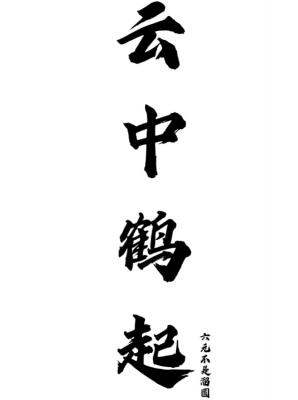 云中鹤起
六元不是溜圆